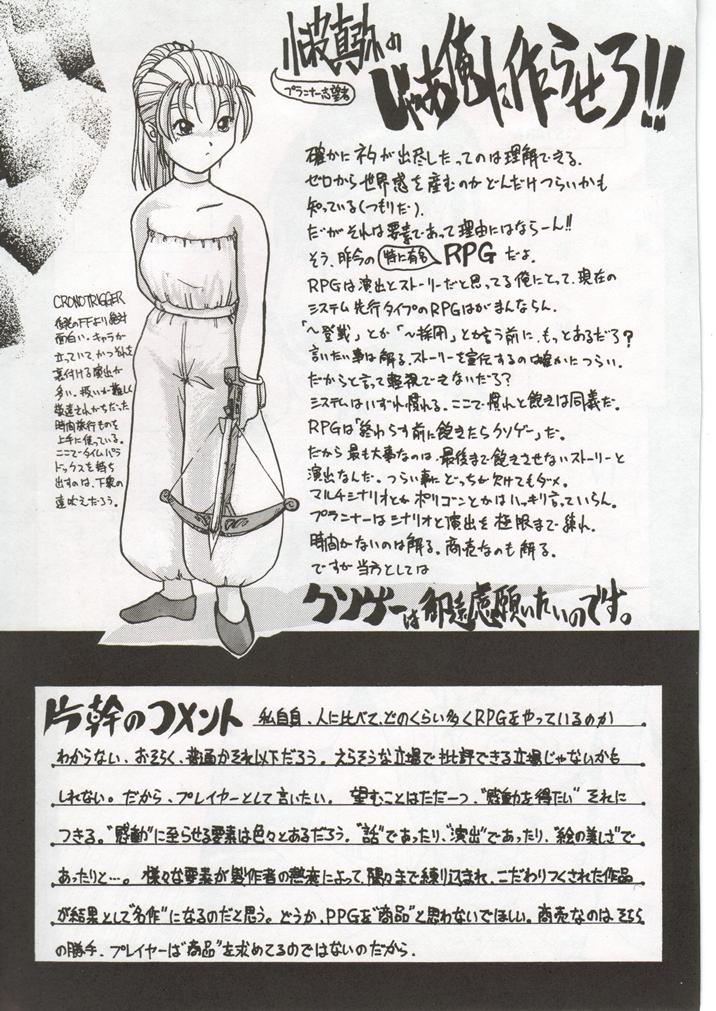 真弥の
じゃあ俺に作らせろ!!
プランナー志望者
確かにネタが出尽したってのは理解できる.
ゼロから世界感を産むのがどんだけつらいかも
知っている(つもりだ).
だがそれは要素であって理由にはならーん!!
そう、昨今の 特に有名 RPG だよ.
RPGは演出とストーリーだと思ってる俺にとって、現在の
システム先行タイプのRPGはがまんならん.
「〜登載」とか「〜採用」とか言う前に、もっとあるだろ?
言いたい事は解る.ストーリーを宣伝するのは確かにつらい.
だからと言って軽視できないだろ?
システムはいずれ慣れる.ここで慣れと飽きは同義だ.
RPGは「終わらす前に飽きたらクソゲー」だ.
だから最も大事なのは、最後まで飽きさせないストーリーと
演出なんだ.つらい事にどっちが欠けてもダメ.
マルチシナリオとかポリゴンとかははっきり言っていらん.
プランナーはシナリオと演出を極限まで練れ.
時間がないのは解る.商売なのも解る.
ですが当方としては
クソゲーは御遠慮願いたいのです。
CRONOTRIGGER
FFより絶対
面白い.キャラが
立っていて、かつ
裏付ける演出が
多い.扱いが難しく
がちだった
時間旅行ものを
上手に使っている.
ここでタイムパラ
ドックスを持ち
出すのは、下衆の
遠吠えだろう.
片幹のコメント
私自身、人に比べて、どのくらい多くRPGをやっているのか
わからない、おそらく、普通かそれ以下だろう。えらそうな立場で批評できる立場じゃないかも
しれない。だから、プレイヤーとして言いたい。望むことはただ一つ、"感動を得たい"それに
つきる。"感動"に至らせる要素は色々とあるだろう、"話"であったり、"演出"であったり、"絵の美しさ"で
あったりと…。様々な要素が製作者の熱意によって、隅々まで練り込まれ、こだわりつくされた作品
が結果として"名作"になるのだと思う。どうか、PPGを"商品"と思わないでほしい。商売なのはそちら
の勝手、プレイヤーは"商品"を求めてるのではないのだから.